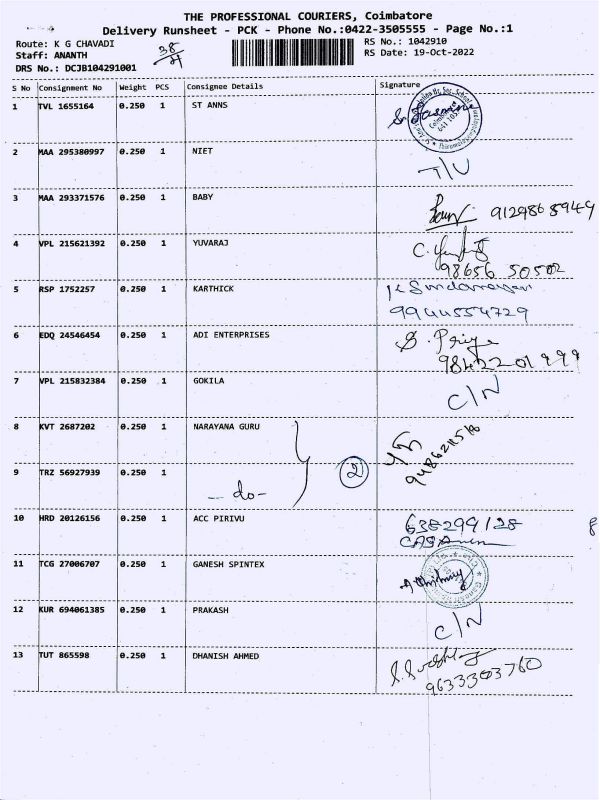 THE PROFESSIONAL COURIERS, Coimbatore
Delivery Runsheet - PCK - Phone No.:0422-3505555 - Page No.:1
Route: K G CHAVADI
RS No.: 1042910
Staff: ANANTH
38
RS Date: 19-Oct-2022
DRS No.: DCJB104291001
S No Consignment No Weight PCS Consignee Details Signature
1 TVL 1655164 0.250 1 ST ANNS
2 MAA 295380997 0.250 1 NIET T/U
3 MAA 293371576 0.250 1 BABY
4 VPL 215621392 0.250 1 YUVARAJ C.
98656 50502
5 RSP 1752257 0.250 1 KARTHICK
9944554729
6 EDQ 24546454 0.250 1 ADI ENTERPRISES S. Priya
9842201999
7 VPL 215832384 0.250 1 GOKILA C/N
8 KVT 2687202 0.250 1 NARAYANA GURU
9 TRZ 56927939 0.250 1 - do - 2
10 HRD 20126156 0.250 1 ACC PIRIVU 638299128
11 TCG 27006707 0.250 1 GANESH SPINTEX
12 KUR 694061385 0.250 1 PRAKASH C/N
13 TUT 865598 0.250 1 DHANISH AHMED
9633303760